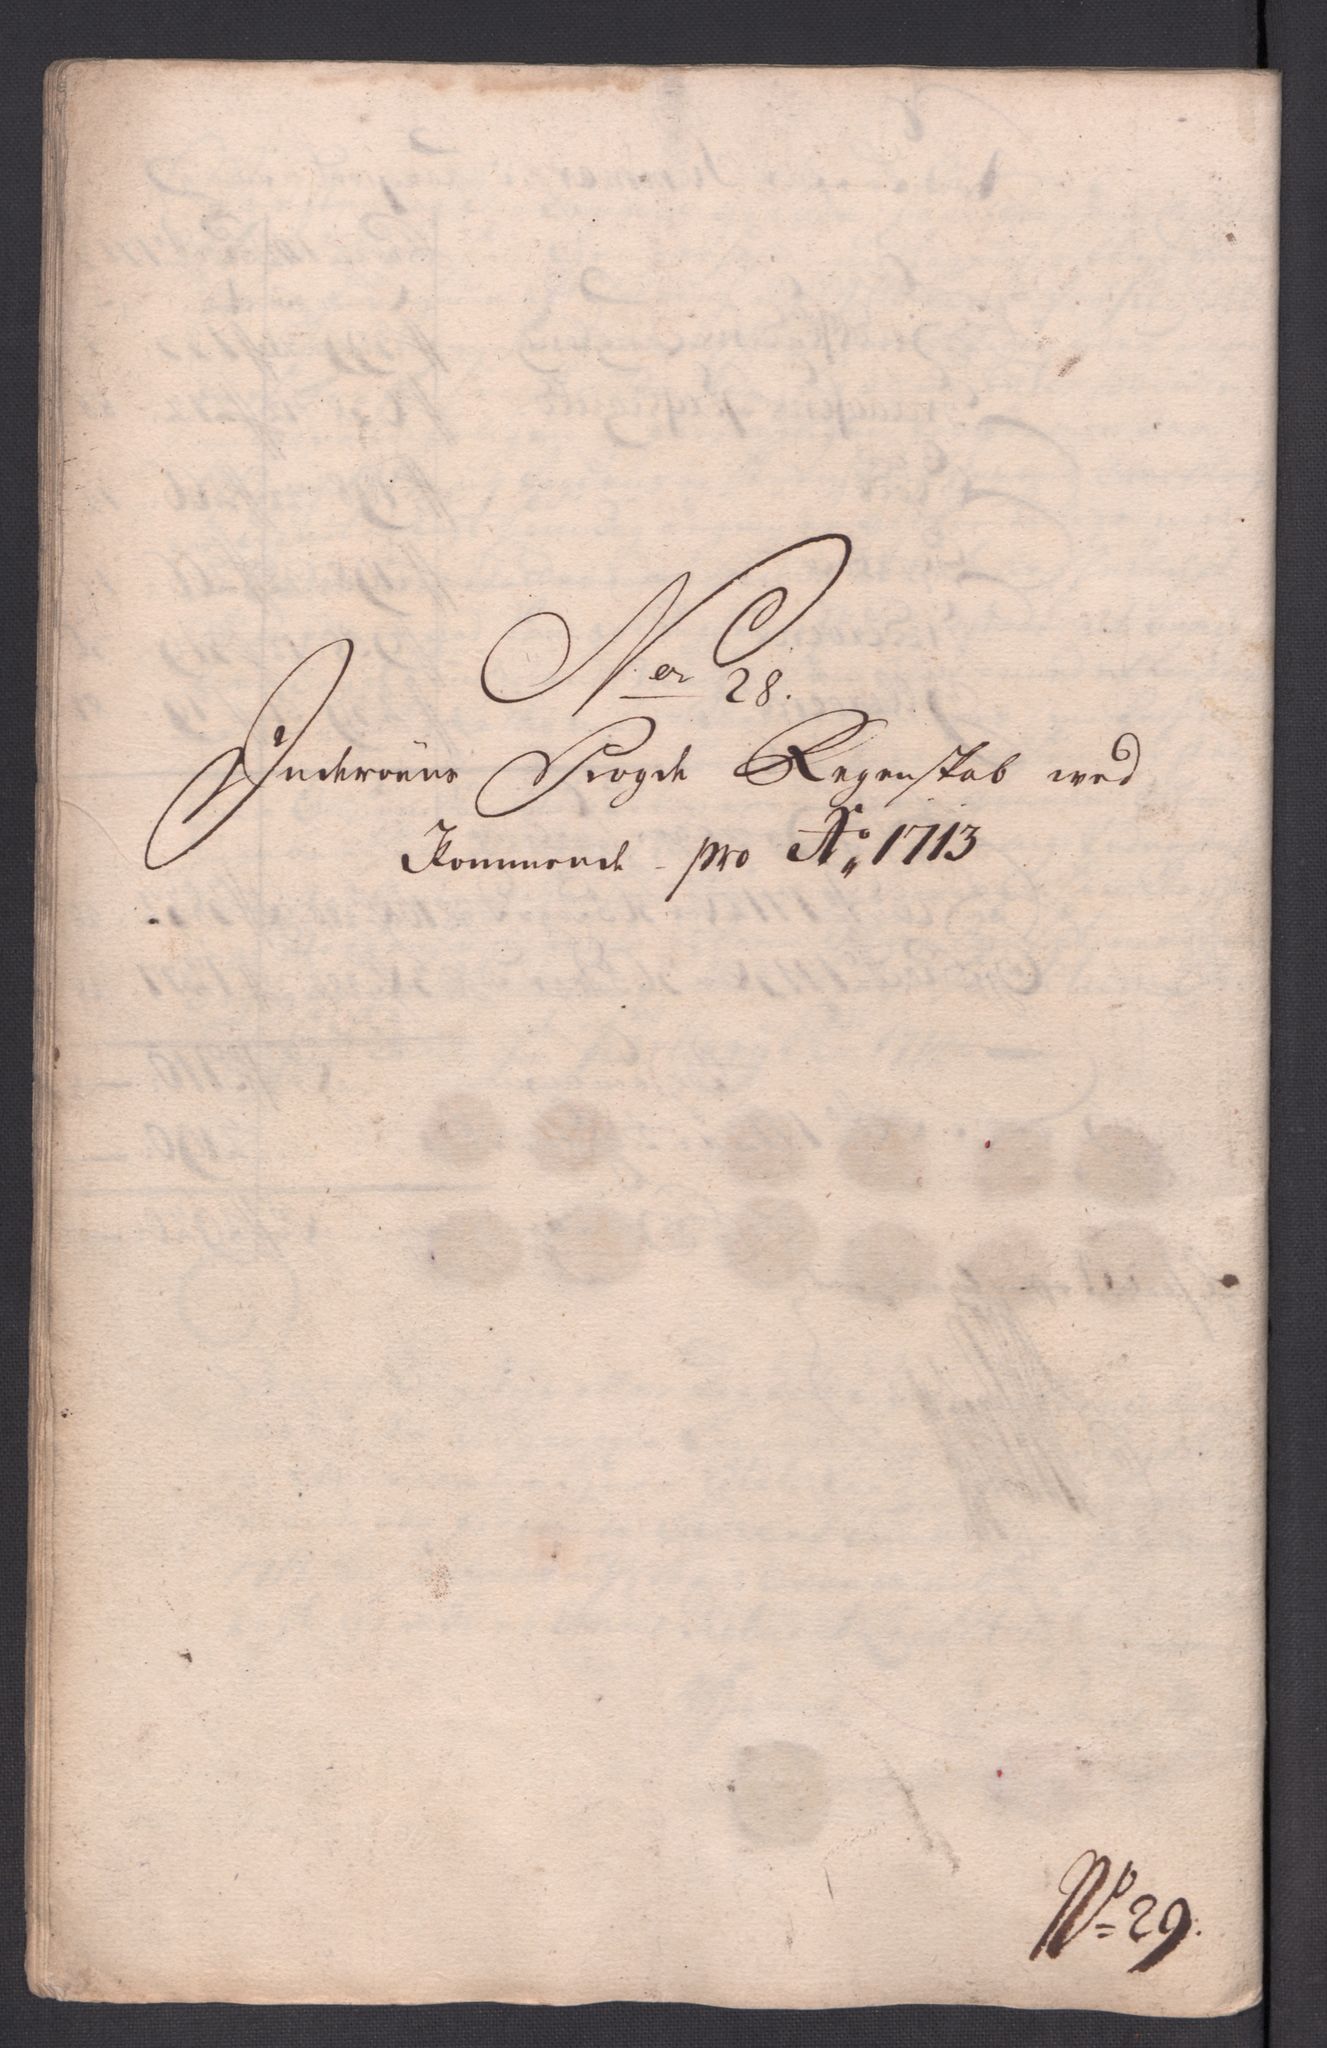 N er 28.
Inderøens Fiogde Regenskab wed
Kommende - pro Ao 1713
No = 29.